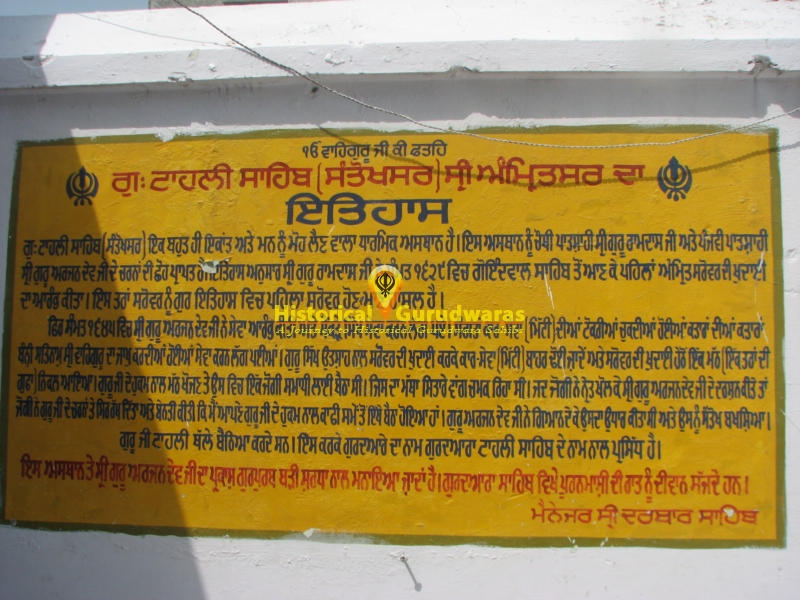 ੴ ਵਾਹਿਗੁਰੂ ਜੀ ਕੀ ਫਤਹਿ
ਗੁਃ ਟਾਹਲੀ ਸਾਹਿਬ (ਸੰਤੋਖਸਰ) ਸ੍ਰੀ ਅੰਮ੍ਰਿਤਸਰ ਦਾ
ਇਤਿਹਾਸ
ਗੁਃ ਟਾਹਲੀ ਸਾਹਿਬ (ਸੰਤੋਖਸਰ) ਇਕ ਬਹੁਤ ਹੀ ਇਕਾਂਤ ਅਤੇ ਮਨ ਨੂੰ ਮੋਹ ਲੈਣ ਵਾਲਾ ਧਾਰਮਿਕ ਅਸਥਾਨ ਹੈ। ਇਸ ਅਸਥਾਨ ਨੂੰ ਚੌਥੀ ਪਾਤਸ਼ਾਹੀ ਸ੍ਰੀ ਗੁਰੂ ਰਾਮਦਾਸ ਜੀ ਅਤੇ ਪੰਜਵੀ ਪਾਤਸ਼ਾਹੀ
ਸ੍ਰੀ ਗੁਰੂ ਅਰਜਨ ਦੇਵ ਜੀ ਦੇ ਚਰਨਾਂ ਦੀ ਛੋਹ ਪ੍ਰਾਪਤ ਇਤਿਹਾਸ ਅਨੁਸਾਰ ਸ੍ਰੀ ਗੁਰੂ ਰਾਮਦਾਸ ਜੀ ੧੬੨੧ ਵਿਚ ਗੋਇੰਦਵਾਲ ਸਾਹਿਬ ਤੋਂ ਆਣ ਕੇ ਪਹਿਲਾਂ ਅੰਮ੍ਰਿਤ ਸਰੋਵਰ ਦੀ ਖੁਦਾਈ
ਦਾ ਆਰੰਭ ਕੀਤਾ। ਇਸ ਤਰਾਂ ਸਰੋਵਰ ਨੂੰ ਗੁਰ ਇਤਿਹਾਸ ਵਿਚ ਪਹਿਲਾ ਸਰੋਵਰ ਹੋਣ ਹੈ।
ਫਿਰ ਸੰਮਤ ੧੬੪੫ ਵਿਚ ਸ੍ਰੀ ਗੁਰੂ ਅਰਜਨ ਦੇਵ ਜੀ ਨੇ ਸੇਵਾ (ਮਿੱਟੀ) ਦੀਆਂ ਟੋਕਰੀਆਂ ਚੁਕਦੀਆਂ ਹੋਈਆਂ ਕਤਾਰਾਂ ਦੀਆਂ ਕਤਾਰਾਂ
ਬੰਨੀ ਸਤਿਨਾਮ ਸ੍ਰੀ ਵਾਹਿਗੁਰੂ ਦਾ ਜਾਪ ਕਰਦੀਆਂ ਹੋਈਆਂ ਸੇਵਾ ਕਰਨ ਲੱਗ ਪਈਆਂ। ਗੁਰੂ ਸਿੱਖ ਉਤਸ਼ਾਹ ਨਾਲ ਸਰੋਵਰ ਦੀ ਖੁਦਾਈ ਕਰਕੇ ਕਾਰ-ਸੇਵਾ (ਮਿੱਟੀ) ਬਾਹਰ ਢੋਈ ਜਾਂਦੇ ਅਤੇ ਸਰੋਵਰ ਦੀ ਖੁਦਾਈ ਹੇਠੋਂ ਇਕ ਮੱਠ (ਇਕ ਤਰਾਂ ਦੀ
ਗੁਫਾ) ਨਿਕਲ ਆਇਆ। ਗੁਰੂ ਜੀ ਦੇ ਹੁਕਮ ਨਾਲ ਮੱਠ ਖੋਲਣ ਤੇ ਉਸ ਵਿਚ ਇਕ ਜੋਗੀ ਸਮਾਧੀ ਲਾਈ ਬੈਠਾ ਸੀ। ਜਿਸ ਦਾ ਮੱਥਾ ਸਿਤਾਰੇ ਵਾਂਗ ਚਮਕ ਰਿਹਾ ਸੀ। ਜਦ ਜੋਗੀ ਨੇ ਨੇਤ੍ਰ ਖੋਲ ਕੇ ਸ੍ਰੀ ਗੁਰੂ ਅਰਜਨ ਦੇਵ ਜੀ ਦੇ ਦਰਸ਼ਨ ਕੀਤੇ ਤਾਂ
ਜੋਗੀ ਨੇ ਗੁਰੂ ਜੀ ਦੇ ਚਰਨਾਂ ਤੇ ਸਿਰ ਰੱਖ ਦਿੱਤਾ ਅਤੇ ਬੇਨਤੀ ਕੀਤੀ ਕਿ ਮੈਂ ਆਪਣੇ ਗੁਰੂ ਜੀ ਦੇ ਹੁਕਮ ਨਾਲ ਕਾਫੀ ਸਮੇਂ ਤੋਂ ਇਥੇ ਬੈਠਾ ਹੋਇਆ ਹਾਂ। ਗੁਰੂ ਅਰਜਨ ਦੇਵ ਜੀ ਨੇ ਗਿਆਨ ਦੇ ਕੇ ਉਸਦਾ ਉਧਾਰ ਕੀਤਾ ਸੀ ਅਤੇ ਉਸ ਨੂੰ ਸੰਤੋਖ ਬਖਸ਼ਿਆ।
ਗੁਰੂ ਜੀ ਟਾਹਲੀ ਥੱਲੇ ਬੈਠਿਆ ਕਰਦੇ ਸਨ। ਇਸ ਕਰਕੇ ਗੁਰਦੁਆਰੇ ਦਾ ਨਾਮ ਗੁਰਦੁਆਰਾ ਟਾਹਲੀ ਸਾਹਿਬ ਦੇ ਨਾਮ ਨਾਲ ਪ੍ਰਸਿੱਧ ਹੈ।
ਇਸ ਅਸਥਾਨ ਤੇ ਸ੍ਰੀ ਗੁਰੂ ਅਰਜਨ ਦੇਵ ਜੀ ਦਾ ਪ੍ਰਕਾਸ਼ ਗੁਰਪੁਰਬ ਬੜੀ ਸ਼ਰਧਾ ਨਾਲ ਮਨਾਇਆ ਜਾਂਦਾ ਹੈ। ਗੁਰਦਆਰਾ ਸਾਹਿਬ ਵਿਖੇ ਪੂਰਨਮਾਸ਼ੀ ਦੀ ਰਾਤ ਨੂੰ ਦੀਵਾਨ ਸੱਜਦੇ ਹਨ।
ਮੈਨੇਜਰ ਸ੍ਰੀ ਦਰਬਾਰ ਸਾਹਿਬ
Historical Gurudwaras
A Journey to Historical Gurudwara Sahibs